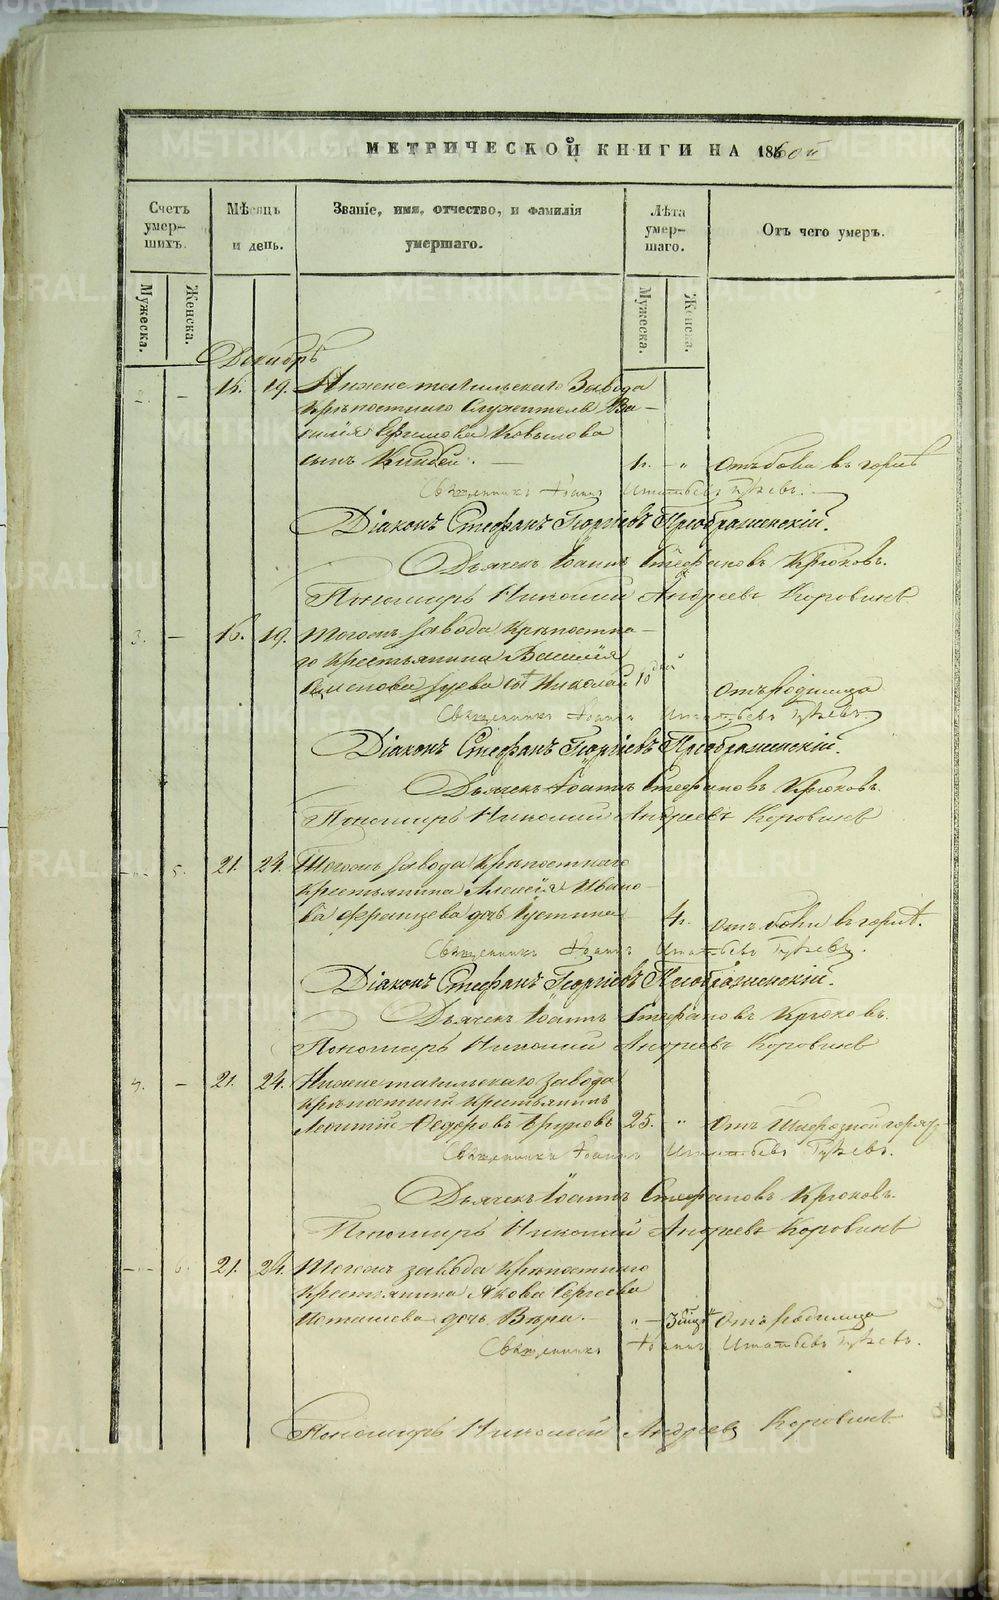 МЕТРИЧЕСКОЙ КНИГИ НА 1860й
Счетъ умершихъ.
Мѣсяцъ и день.
Званіе, имя, отчество, и фамилія умершаго.
Лѣта умершаго.
Отъ чего умеръ.
Мужеска.
Женска.
Мужеска.
Женска.
Декабрь
2. – 16. 19. Нижнетагильскаго Завода
крѣпостнаго Служителя Ва-
силія Ефимова Ковылова
сынъ – 1 г. – " Отъ боли въ горлѣ
Священникъ Іоаннъ Игнатьевъ
Діаконъ Стефанъ Георгіевъ Преображенскій.
Дьячекъ Іоаннъ Стефановъ Крюковъ.
Пономарь Николай Андреевъ Коровинъ
3. – 16. 19. Тогожъ завода крѣпостна-
го крестьянина Василія
Семенова сы Николай 10 дней " Отъ родимца
Священникъ Іоаннъ Игнатьевъ
Діаконъ Стефанъ Георгіевъ Преображенскій.
Дьячекъ Іоаннъ Стефановъ Крюковъ.
Пономарь Николай Андреевъ Коровинъ
– 5. 21. 24. Тогожъ завода крѣпостнаго
крестьянина Алексѣя Ивано-
ва дочь Устинья 4 г. Отъ боли въ горлѣ.
Священникъ Іоаннъ Игнатьевъ
Діаконъ Стефанъ Георгіевъ Преображенскій.
Дьячекъ Іоаннъ Стефановъ Крюковъ.
Пономарь Николай Андреевъ Коровинъ
4. – 21. 24. Нижнетагильскаго завода
крѣпостный крестьянинъ
Леонтій Ѳедоровъ 25. " Отъ
Священникъ Іоаннъ Игнатьевъ
Дьячекъ Іоаннъ Стефановъ Крюковъ.
Пономарь Николай Андреевъ Коровинъ
– 6. 21. 24. Тогожъ завода крѣпостнаго
крестьянина Якова Сергѣева
дочь Вѣра. – " – Отъ родимца
Священникъ Іоаннъ Игнатьевъ
Пономарь Николай Андреевъ Коровинъ
METRIKI.GASO-URAL.RU